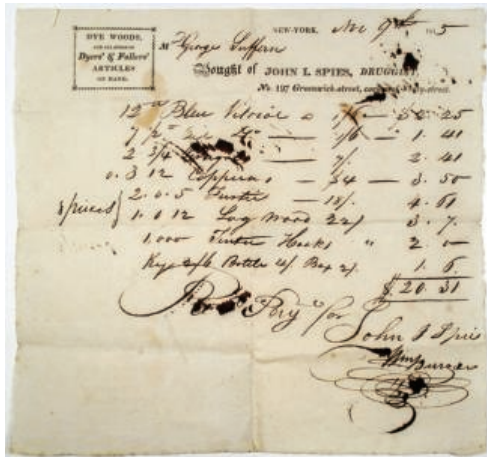 DYE WOODS,
Dyers' & Fullers'
ARTICLES
ON HAND.
NEW-YORK, Nov 9th
Mr George Suffern
Bought of JOHN L SPIES, DRUGGIST,
No 197 Greenwich-street,
12 Blue Vitriol a 1/6 — $ 2 25
7 1/2 1/6 — 1. 41
2 3/4 7/ 2. 41
0. 3 12 Copperas — 34 — 3. 50
2. 0. 5 Fustic — 18/ 4. 61
1. 0 12 Log Wood 22/ 3. 7.
1.000 Tenter Hooks " 2 0
Kegs 2/6 Bottle 4/ Box 2/. 1. 6.
$ 20. 31
Pay for
John L Spies
Wm Burger